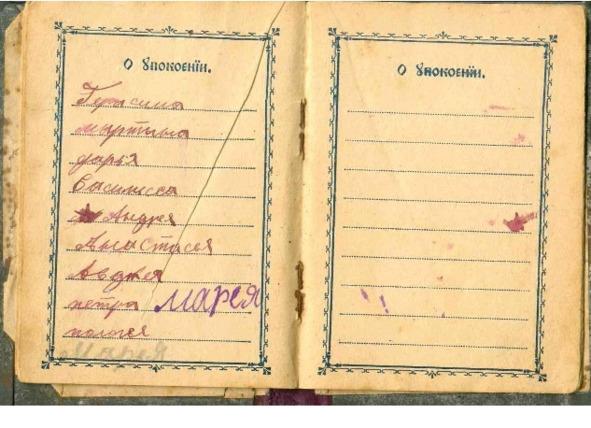 О Упокоєнїи.
Герасима
мартына
дарья
Василисса
Андрея
Анастасея
Авдея
петра марея
пологея
Марея
О Упокоєнїи.